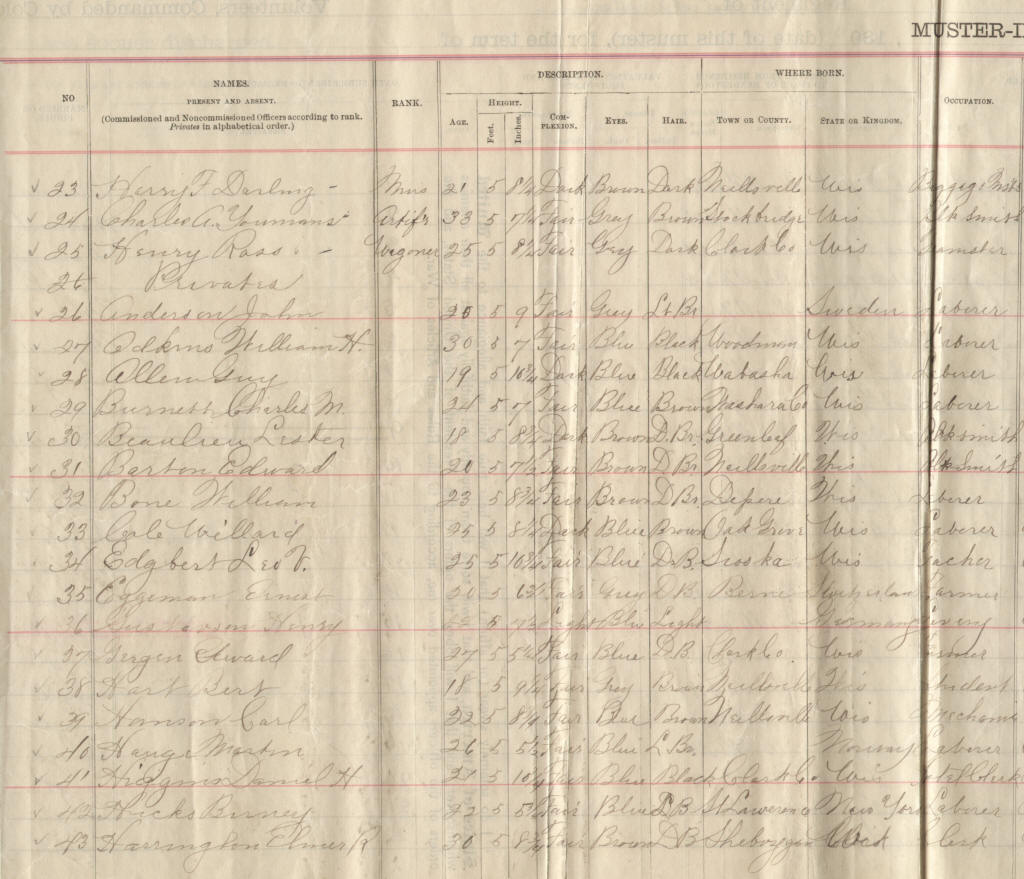 MUSTER-I
NO NAMES. PRESENT AND ABSENT. (Commissioned and Noncommissioned Officers according to rank. Privates in alphabetical order.) RANK. DESCRIPTION. AGE. HEIGHT. Feet. Inches. COMPLEXION. EYES. HAIR. WHERE BORN. TOWN OR COUNTY. STATE OR KINGDOM. OCCUPATION.
23 Harry F. Darling - Mus 21 5 8½ Dark Brown Dark Neillsville Wis
24 Charles A. Youmans Artif'r 33 5 7½ Fair Grey Brown Stockbridge Wis Blk Smith
25 Henry Ross - Wagoner 25 5 8½ Fair Grey Dark Clark Co Wis Teamster
26 Privates
26 Anderson John 5 9 Fair Grey Lt Br Sweden Laberer
27 William H. 30 5 7 Fair Blue Black Woodman Wis Laberer
28 Allen Guy 19 5 10¾ Dark Blue Black Wabasha Wis Laberer
29 Burnett Charles M. 24 5 7 Fair Blue Brown Washara Co Wis Laberer
30 Beaulieu Lester 18 5 Dark Brown D. Br. Greenleaf Wis Blksmith
31 Barton Edward 5 7½ Fair Brown D Br Neillsville Wis Blk Smith
32 Bone William 23 5 8¾ Fair Brown D Br. Depere Wis Laberer
33 Cole Willard 25 5 8½ Dark Blue Brown Oak Grove Wis Laberer
34 Edgbert Leo V. 25 5 Fair Blue D. B. Wis Teacher
35 Eggeman Ernest 20 5 Fair Grey D. B. Berne Switzerland Farmer
36 Gustavson Henry 5 7½ Light Blue Light
37 Gergen Edward 27 5 Fair Blue D. B. Clark Co. Wis Farmer
38 Hart Bert 18 5 9½ Fair Grey Brown Neillsville Wis Student
39 Hanson Carl 32 5 8¼ Fair Blue Brown Neillsville Wis Mechanic
40 Hauge Martin 26 5 5½ Fair Blue L Br. Norway Laberer
41 Higgins Daniel H 27 5 Fair Blue Black Clark Co. Wis
42 Hicks Birney 22 5 Fair Blue D. B St Lawrence New York Laberer
43 Harrington Elmer R 30 5 Fair Brown D B Sheboygan Clerk